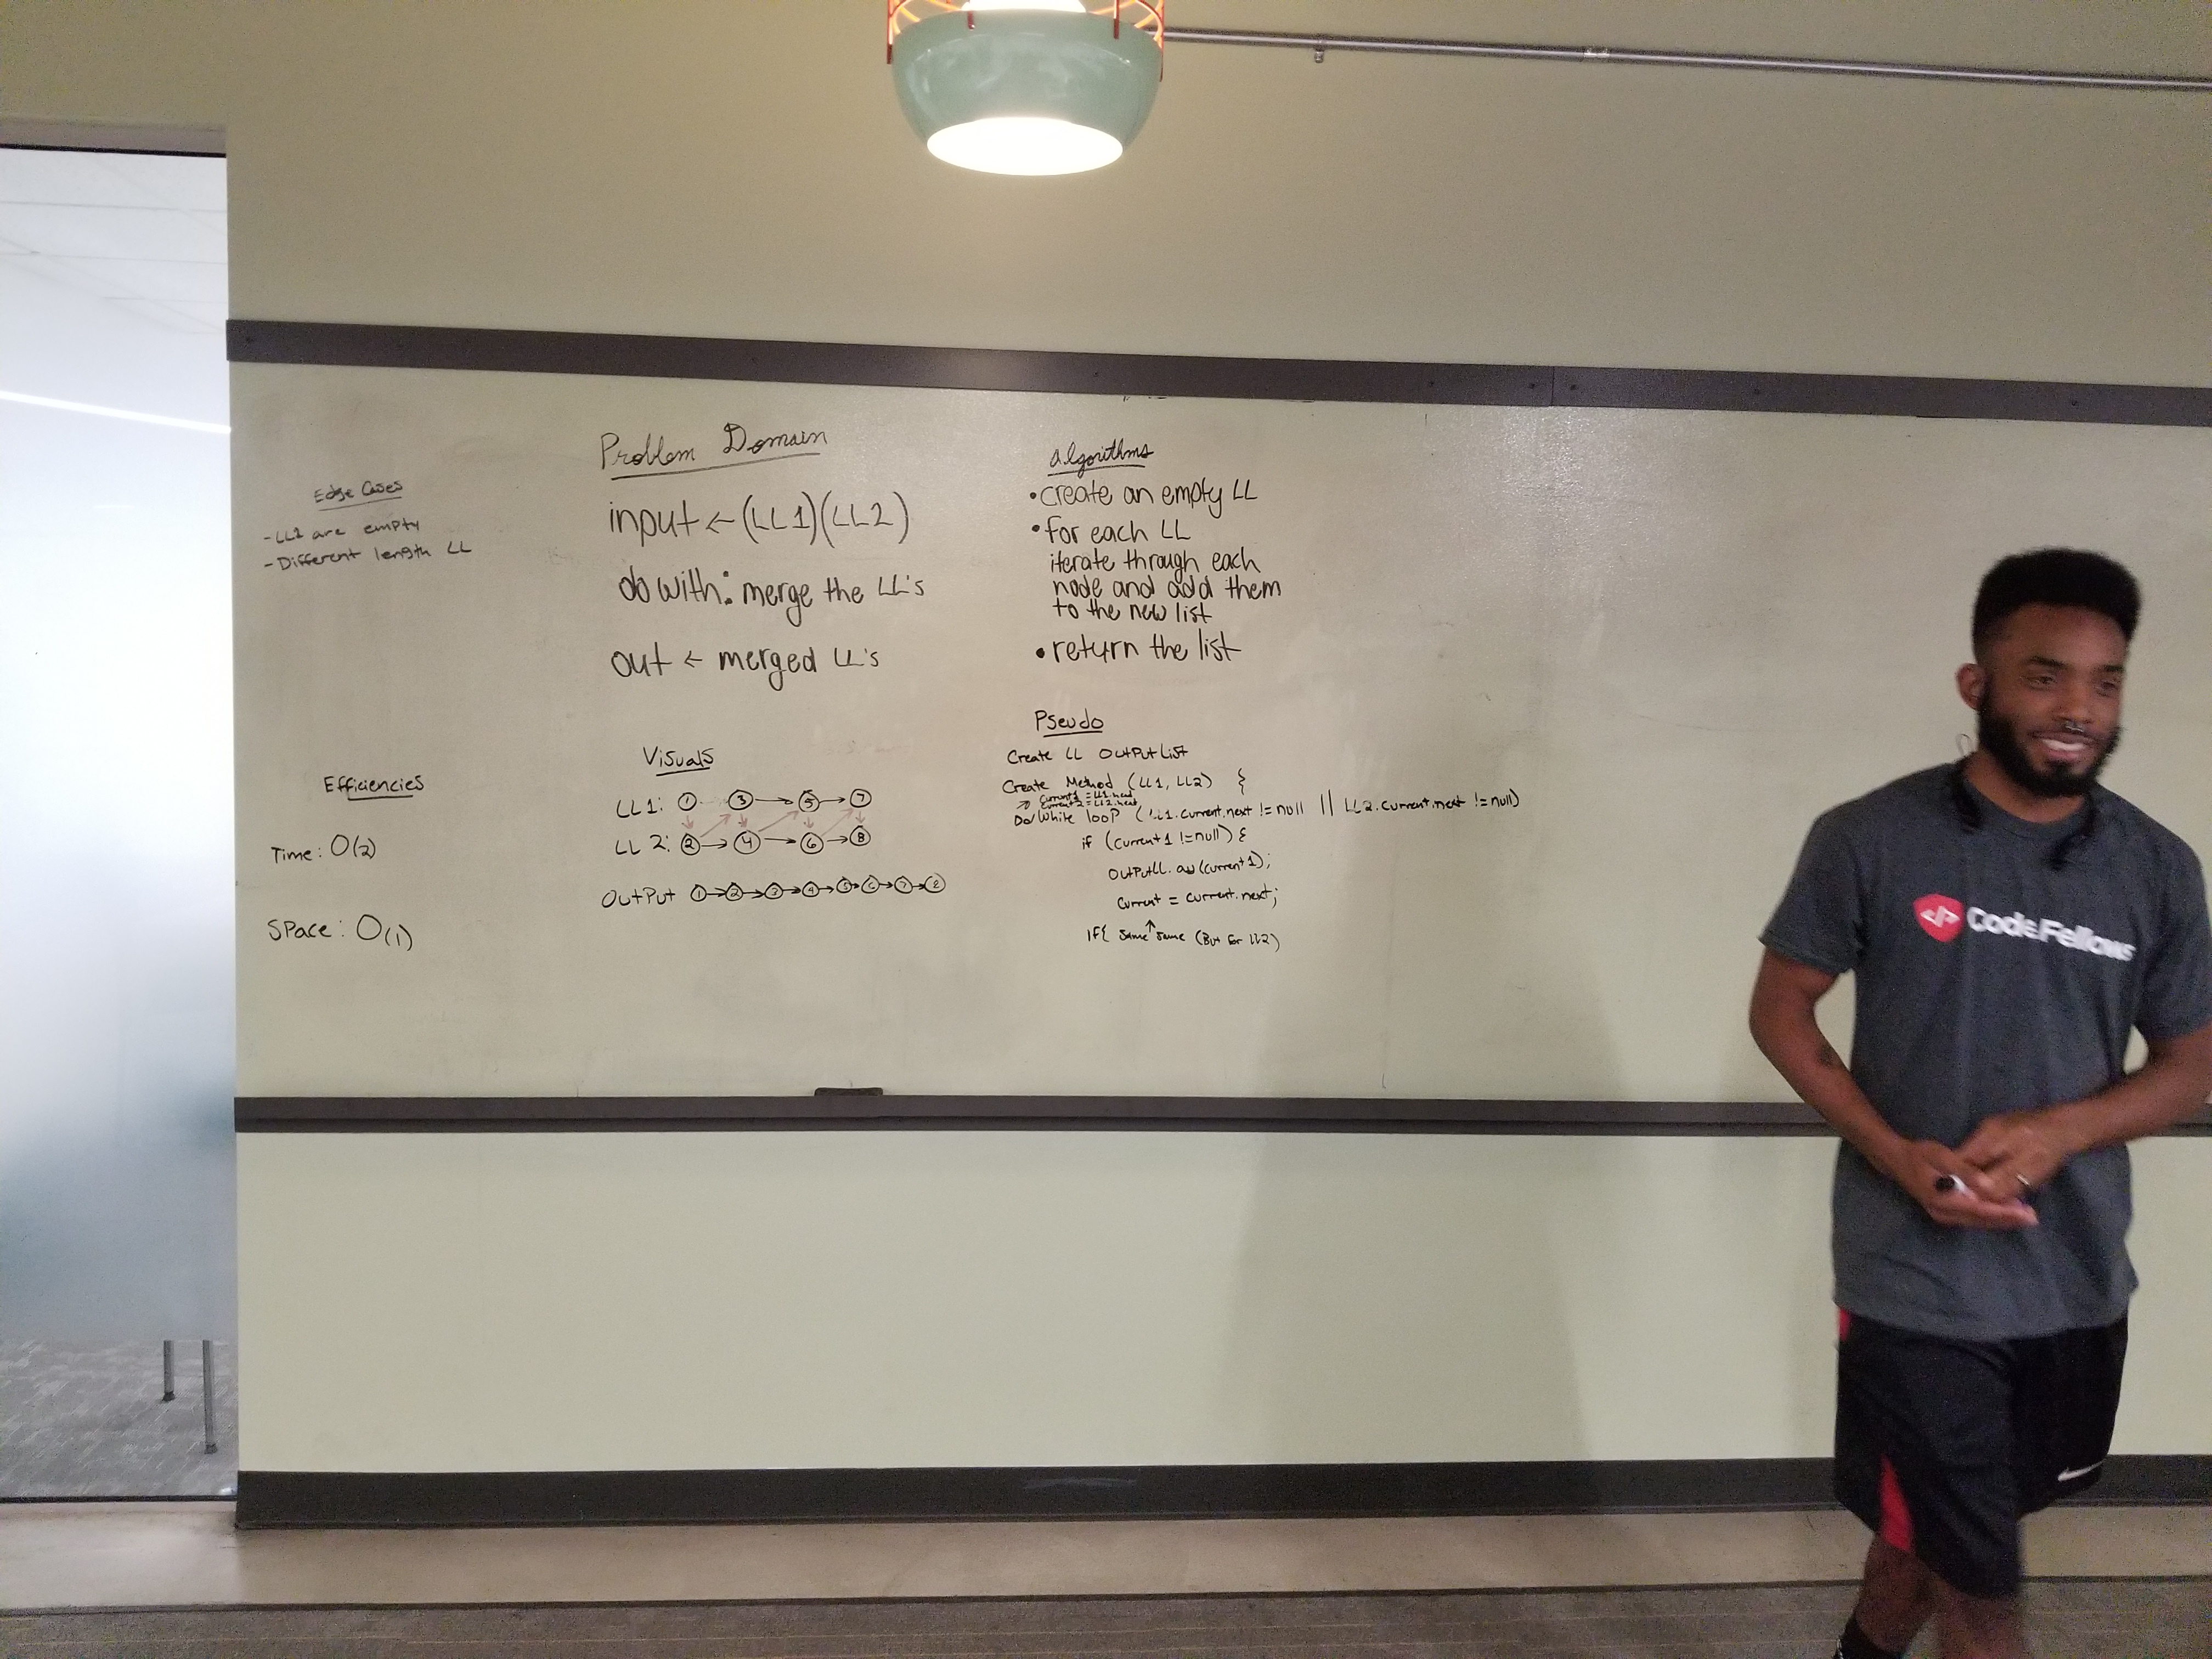 Edge Cases
- LL1 are empty
- Different length LL
Efficiencies
Time: O(2)
Space: O(1)
Problem Domain
input ← (LL1)(LL2)
do with: merge the LL's
out ← merged LL's
Visuals
LL1: 1 3 → 5 → 7
LL 2: 2 → 4 → 6 → 8
OutPut 1 → 2 → 3 → 4 → 5 → 6 → 7 → 8
algorithms
• create an empty LL
• for each LL
iterate through each
node and add them
to the new list
• return the list
Pseudo
Create LL OutPutList
Create Method (LL1, LL2) {
→ Current1 = LL1.head
Current2 = LL2.head
Do/While loop (LL1.current.next != null || LL2.current.next != null)
if (current1 != null) {
OutPutLL.add(current1);
Current = current.next;
If{ same ↑ same (But for LL2)
Code Fellows